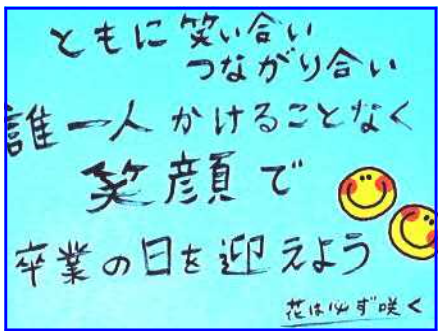 ともに笑い合い
つながり合い
誰一人かけることなく
笑顔で
卒業の日を迎えよう
花は必ず咲く